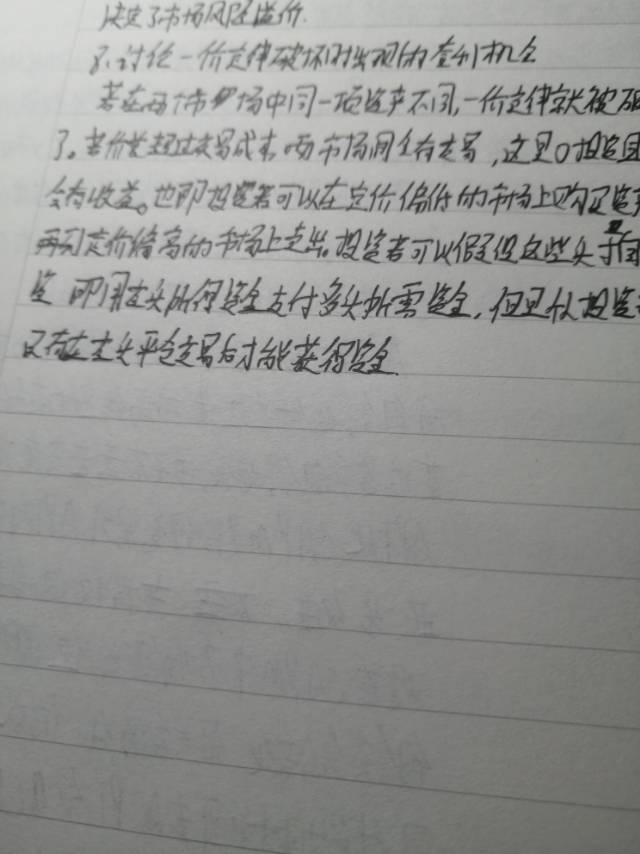 决定了市场风险溢价.
8.讨论一价定律破坏时出现的套利机会
若在两个市场中同一项资产不同,一价定律就被破
了。若价差超过交易成本,两市场间会有交易,这里0投资
会有收益。也即投资者可以在定价偏低的市场上购买资
再到定价偏高的市场上卖出。投资者可以假设这些头
资 即用空头所得资金支付多头所需资金,但是从投资
只有在空头平仓交易后才能获得资金.